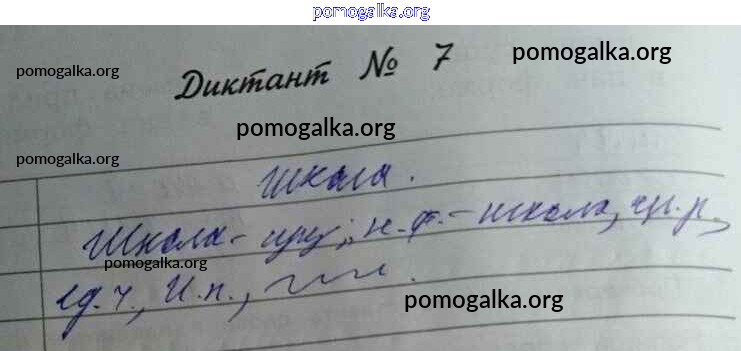 pomogalka.org
Диктант № 7 pomogalka.org
pomogalka.org
pomogalka.org
pomogalka.org
Школа.
Школа - н.ф. - школа,
pomogalka.org
ед.ч., И.п.,
pomogalka.org